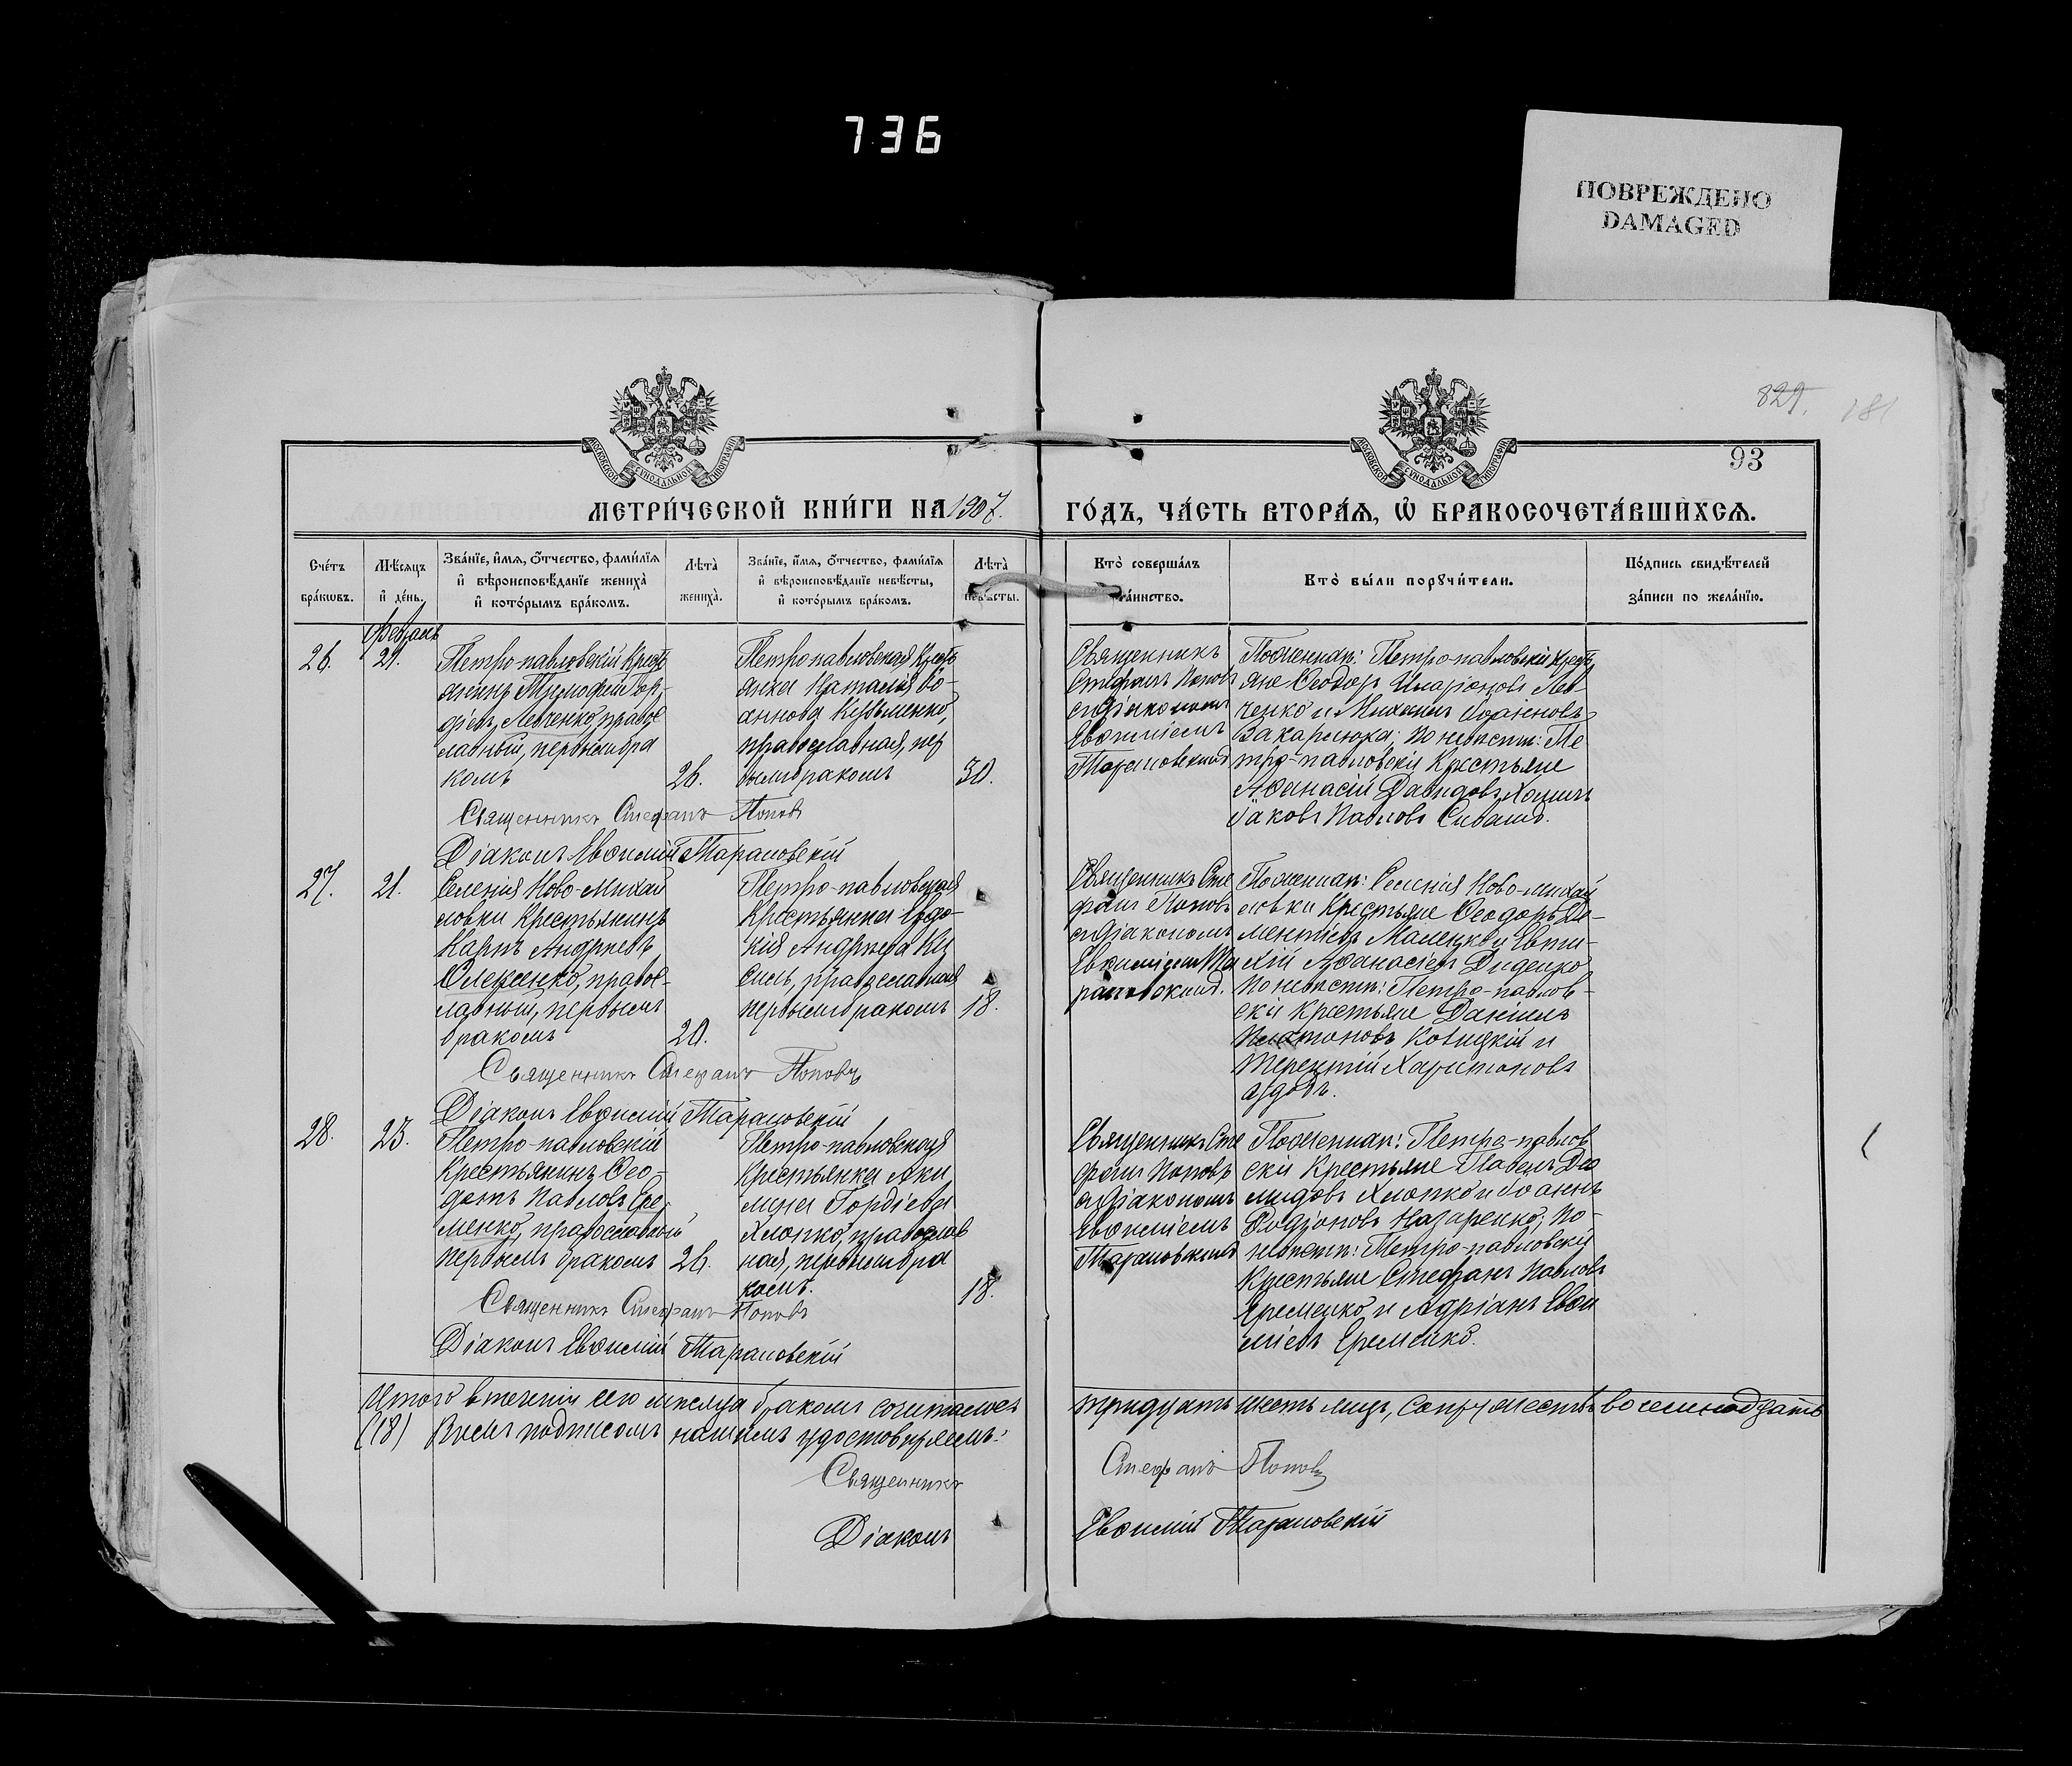 736
ПОВРЕЖДЕНО
DAMAGED
829.
181
93
МОСКОВСКОЙ СѴНОДАЛЬНОЙ ТИПОГРАФІИ
МОСКОВСКОЙ СѴНОДАЛЬНОЙ ТИПОГРАФІИ
МЕТРИ́ЧЕСКОЙ КНИ́ГИ НА 1907. ГО́ДЪ, ЧА́СТЬ ВТОРА́Ѧ, Ѽ БРАКОСОЧЕТА́ВШИХСѦ.
Сче́тъ бра́кѡвъ.
Мѣ́сяцъ и҆ де́нь.
Зва́нїе, и҆́мѧ, ѻ҆́тчество, фами́лїѧ и҆ вѣроисповѣ́данїе жениха̀ и҆ кото́рымъ бра́комъ.
Лѣта̀ жениха̀.
Зва́нїе, и҆́мѧ, ѻ҆́тчество, фами́лїѧ и҆ вѣроисповѣ́данїе невѣ́сты, и҆ кото́рымъ бра́комъ.
Лѣта̀ невѣ́сты.
Кто̀ соверша́лъ та́инство.
Кто̀ бы́ли порꙋчи́тели.
По́дпись свидѣ́телей за́писи по жела́нїю.
Февраль
26.
21.
Петро-павловскій крест
янинъ Тимофей Гор-
діевъ Левченко, правос
лавный, первымъ бра
комъ
26.
Петро-павловская крест
янка Наталія Іо-
аннова Кузьменко,
православная, пер
вымъ бракомъ
30.
Священникъ
Стефанъ Поповъ
съ діакономъ
Евѳиміемъ
Тарановскимъ
По женихѣ: Петро-павловскіе крест
яне Ѳеодоръ Иларіоновъ Лев-
ченко и Михаилъ Іоанновъ
Захарчюка; по невѣстѣ: Пе
тро-павловскіе крестьяне
Аѳанасій Давидовъ
Іаковъ Павловъ Сивашъ.
Священникъ Стефанъ Поповъ
Діаконъ Евѳимій Тарановскій
27.
21.
Селенія Ново-Михай
ловки крестьянинъ
Карпъ Андреевъ
Олексенко, правос-
лавный, первымъ
бракомъ
20.
Петро-павловская
крестьянка Евдо-
кія Андреева Ки
сель, православная
первымъ бракомъ
18.
Священникъ Сте
фанъ Поповъ
съ діакономъ
Евѳиміемъ Та
рановскимъ.
По женихѣ: Селенія Ново-михай
ловки крестьяне Ѳеодоръ До-
ментіевъ Малецкій и Евти-
хій Аѳанасіевъ Диденко
По невѣстѣ: Петро-павлов-
скіе крестьяне Даніилъ
Платоновъ Ковицкій и
Терентій Харитоновъ
Священникъ Стефанъ Поповъ
Діаконъ Евѳимій Тарановскій
28.
23.
Петро-павловскій
крестьянинъ Ѳео-
дотъ Павловъ Ере-
менко, православный
первымъ бракомъ
26.
Петро-павловская
крестьянка Аки
лина Гордіева
Хлопко, православ
ная, первымъ бра
комъ.
18.
Священникъ Сте
фанъ Поповъ
съ діакономъ
Евѳиміемъ
Тарановскимъ
По женихѣ: Петро-павлов
скіе крестьяне Павелъ Дио
мидовъ Хлопко и Іоаннъ
Родіоновъ Назаренко; По-
невѣстѣ: Петро-павловскіе
крестьяне Стефанъ Павловъ
Еременко и Адріанъ Евѳи
міевъ Еременко.
Священникъ Стефанъ Поповъ
Діаконъ Евѳимій Тарановскій
Итого въ теченіи сего мѣсяца бракомъ сочеталось тридцать шесть лицъ, супружествъ восемнадцать
(18) въ чемъ подписомъ нашимъ удостовѣряемъ:
Священникъ Стефанъ Поповъ
Діаконъ Евѳимій Тарановскій